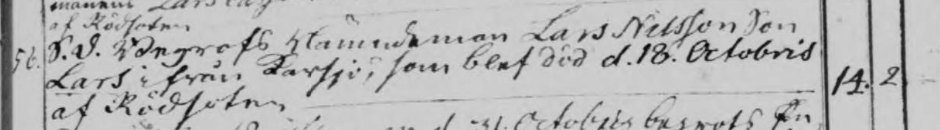 af Rödsoten
56. S. D. Begrofs Nämndeman Lars Nilsson Son
Lars ifrån Karsjö, som blef död d. 18. Octobris
af Rödsoten 14. 2
Octobris begrofs En